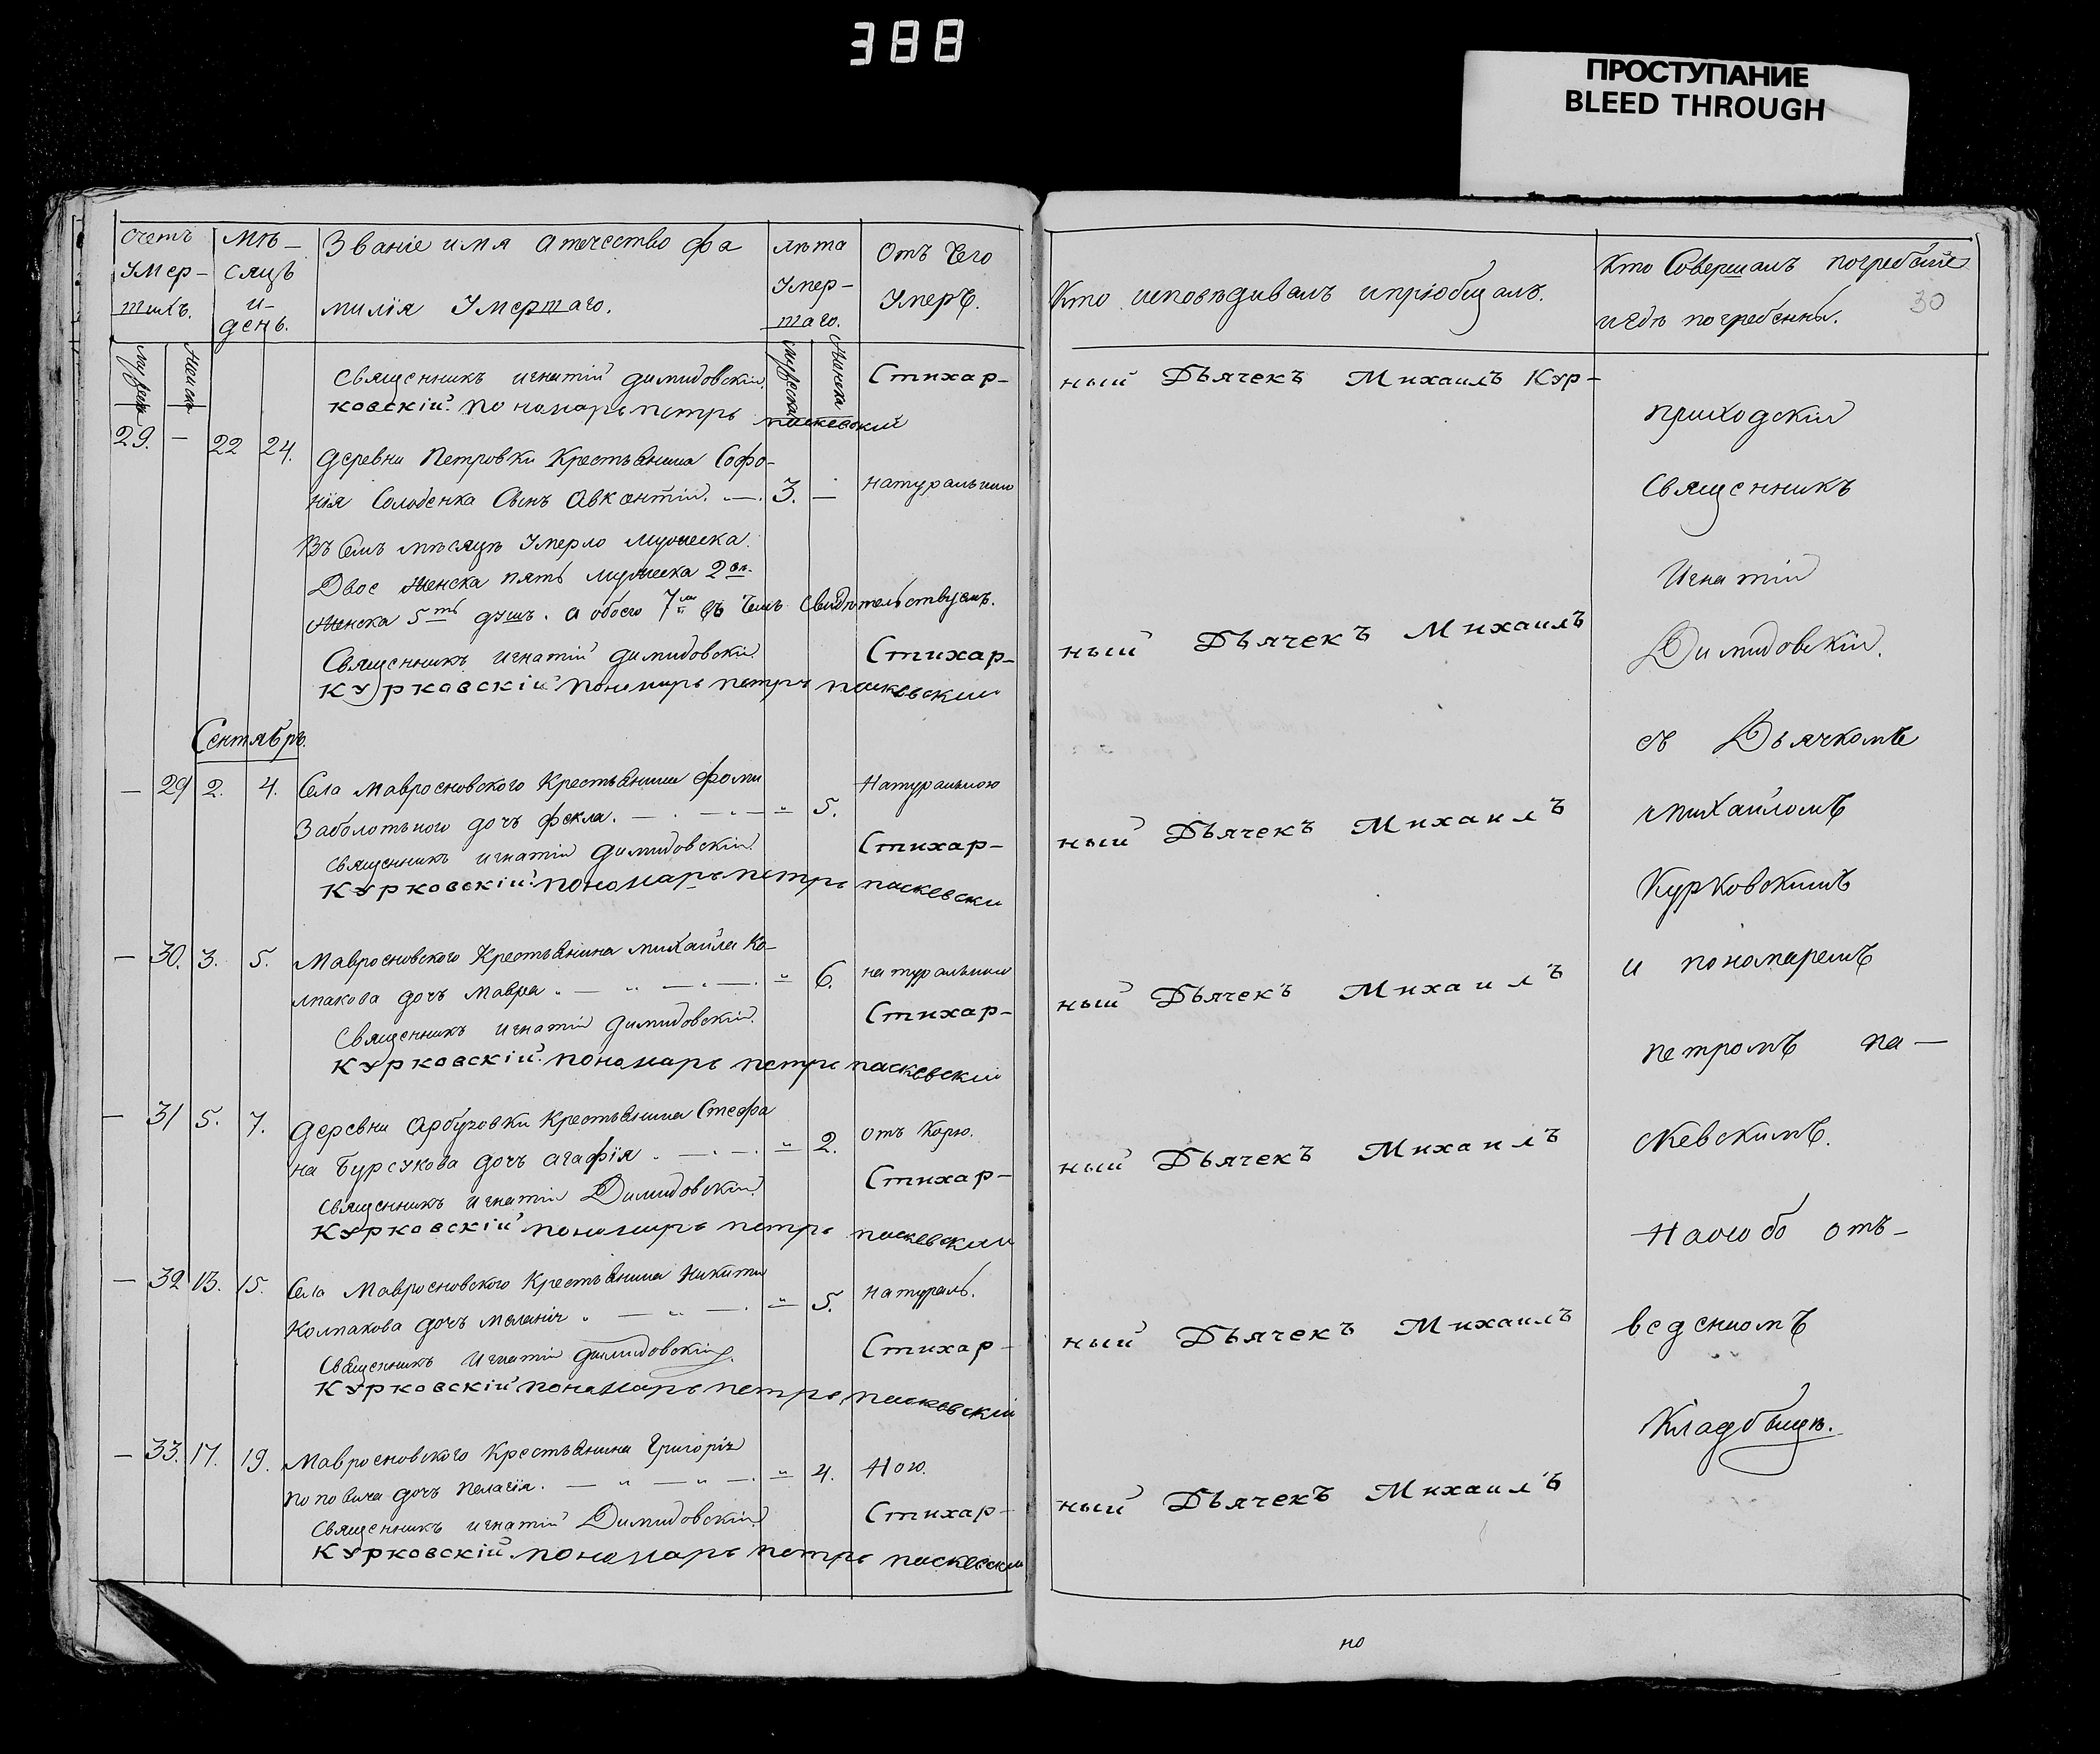 388
ПРОСТУПАНИЕ
BLEED THROUGH
счетъ умершихъ.
мужеск
женска
мѣсяцъ и день.
Званіе имя отечество фамилія умершаго.
лѣта умершаго.
мужеска
женска
Отъ чего умеръ.
Кто исповѣдивалъ и пріобщалъ.
Кто Совершалъ погребеніе
и гдѣ погребенны.
30
Священникъ игнатій димидовскій. Стихар- ный Дьячекъ Михаилъ Кур-
ковскій. пономарь петръ паскевскій
29. — 22 24. деревни Петровки Крестьянина Софо-
нія Солобенка Сынъ Авксентій. — 3. — натуральною
Въ Семъ мѣсяцѣ умерло мужеска
Двое женска пять мужеска 2ое
женска 5ть душъ. а обоего 7 въ чемъ свидѣтельствуемъ.
Священникъ игнатій димидовскій Стихар- ный Дьячекъ Михаилъ
Курковскій пономарь петръ паскевскій
Сентябрь.
— 29 2. 4. Села Мавросновского Крестьянина фомы
Заболотного дочь фекла. — 5. Натуральною
священникъ игнатій димидовскій Стихар- ный Дьячекъ Михаилъ
Курковскій пономарь петръ паскевски
— 30. 3. 5. Мавросновского Крестьянина михайла Ко-
лпакова дочь мавра. — 6. натуральною
Священникъ игнатій димидовскій. Стихар- ный Дьячекъ Михаилъ
Курковскій. пономарь петръ паскевскій
— 31 5. 7. деревни Арбузовки Крестьянина Стефа
на Бурсукова дочь агафія. — 2. отъ Корю.
священникъ игнатій Димидовскій Стихар- ный Дьячекъ Михаилъ
Курковскій пономарь петръ паскевскій
— 32 13. 15. Села Мавросновского Крестьянина Никиты
Колпакова дочь меланія. — 5. натураль.
Священникъ игнатій димидовскій. Стихар- ный Дьячекъ Михаилъ
Курковскій пономарь петръ паскевскій
— 33. 17. 19. Мавросновского Крестьянина Григорія
поповича дочь пелагія. — 4. Ною.
Священникъ игнатій Димидовскій Стихар- ный Дьячекъ Михаилъ
Курковскій. пономарь петръ паскевскій
приходскій
Священникъ
Игнатій
Димидовскій.
съ Дьячкомъ
михайломъ
Курковскимъ
и пономаремъ
петромъ па-
скевскимъ.
На особо отъ-
веденномъ
Кладбищѣ.
но